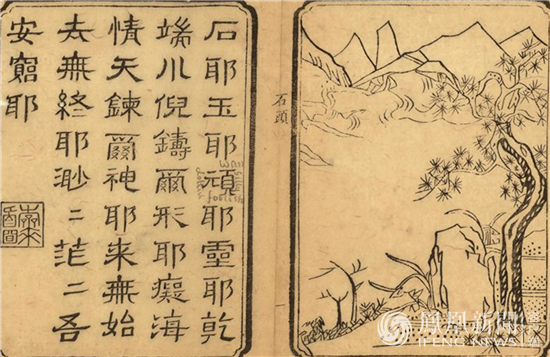 石耶玉耶頑耶靈耶乾
端巛倪鑄爾形耶癡海
情天鍊爾神耶来無始
去無終耶渺二茫二吾
安窮耶
wan
foolish
石頭
鳳凰新聞
IFENG NEWS